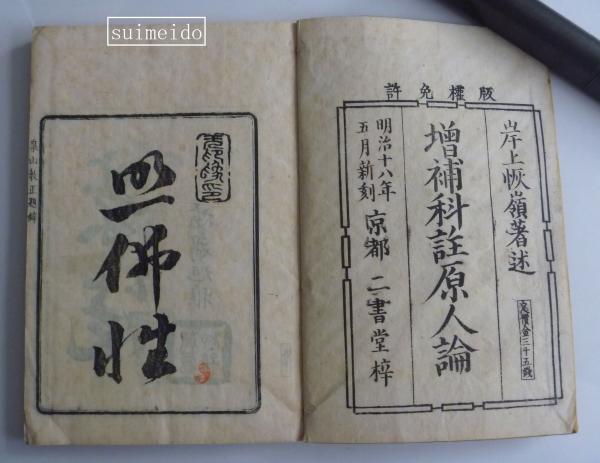 suimeido
版權免許
岸上恢嶺著述
增補科註原人論
明治十八年
五月新刻
京都 二書堂梓
定價金三十五錢
佛性